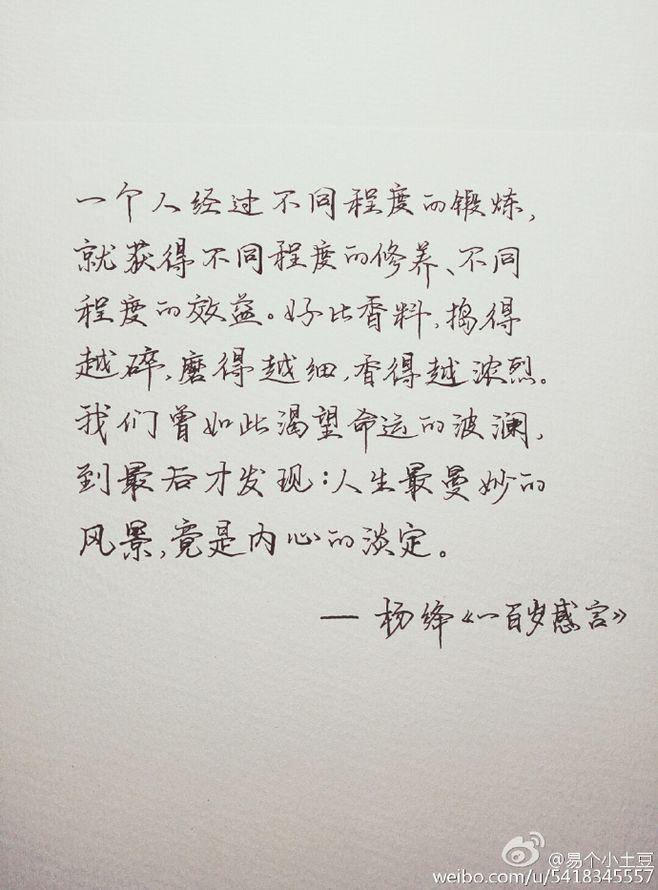 一个人经过不同程度的锻炼,
就获得不同程度的修养、不同
程度的效益。好比香料,捣得
越碎,磨得越细,香得越浓烈。
我们曾如此渴望命运的波澜,
到最后才发现:人生最曼妙的
风景,竟是内心的淡定。
— 杨绛《一百岁感言》
@易个小土豆
weibo.com/u/5418345557